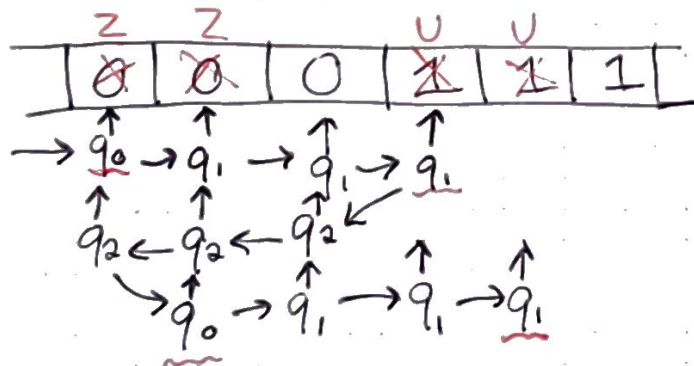 Z Z U U
0 0 0 1 1 1
→ q₀ → q₁ → q₁ → q₁
q₂ ← q₂ ← q₂
q₀ → q₁ → q₁ → q₁